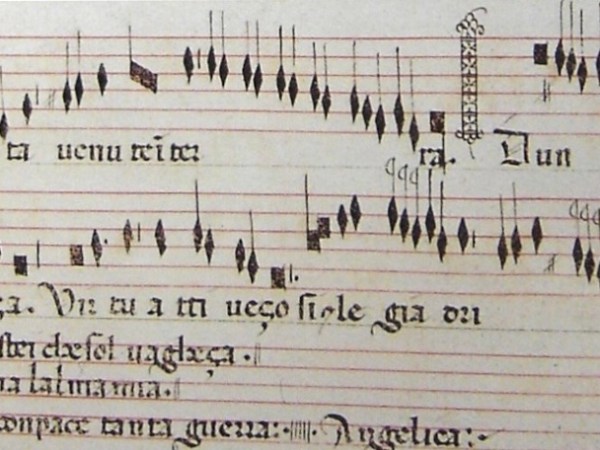 ta uenu tei ter ra. Dun
ça. Vir tu a tti ueço si-le gia dri
stei che sol uagheça.
ta lalma mia.
conpace tanta guerra: Angelica: